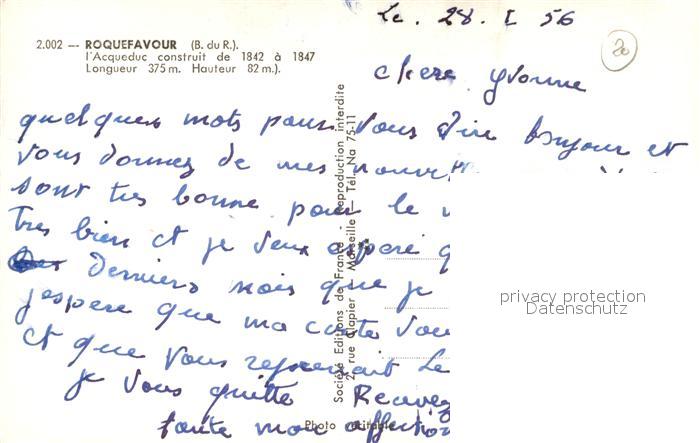 Le. 28. I 56
2.002 — ROQUEFAVOUR (B. du R.).
l'Acqueduc construit de 1842 à 1847
Longueur 375 m. Hauteur 82 m.).
20
chere yvonne
quelques mots pour vous dire bonjour et
vous donnez de mes
sont tres bonne pour le
Tres bien et je veux espere
derniers mois que je
j'espere que ma carte vous
et que vous reprenait Le
je vous quitte Recevez
toute mon affection
Société Editions de France - Reproduction interdite
Marseille - Tél. Na 75-11
Photo véritable
privacy protection
Datenschutz